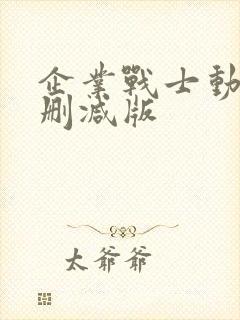 企業戰士動
刪減版
太爺爺